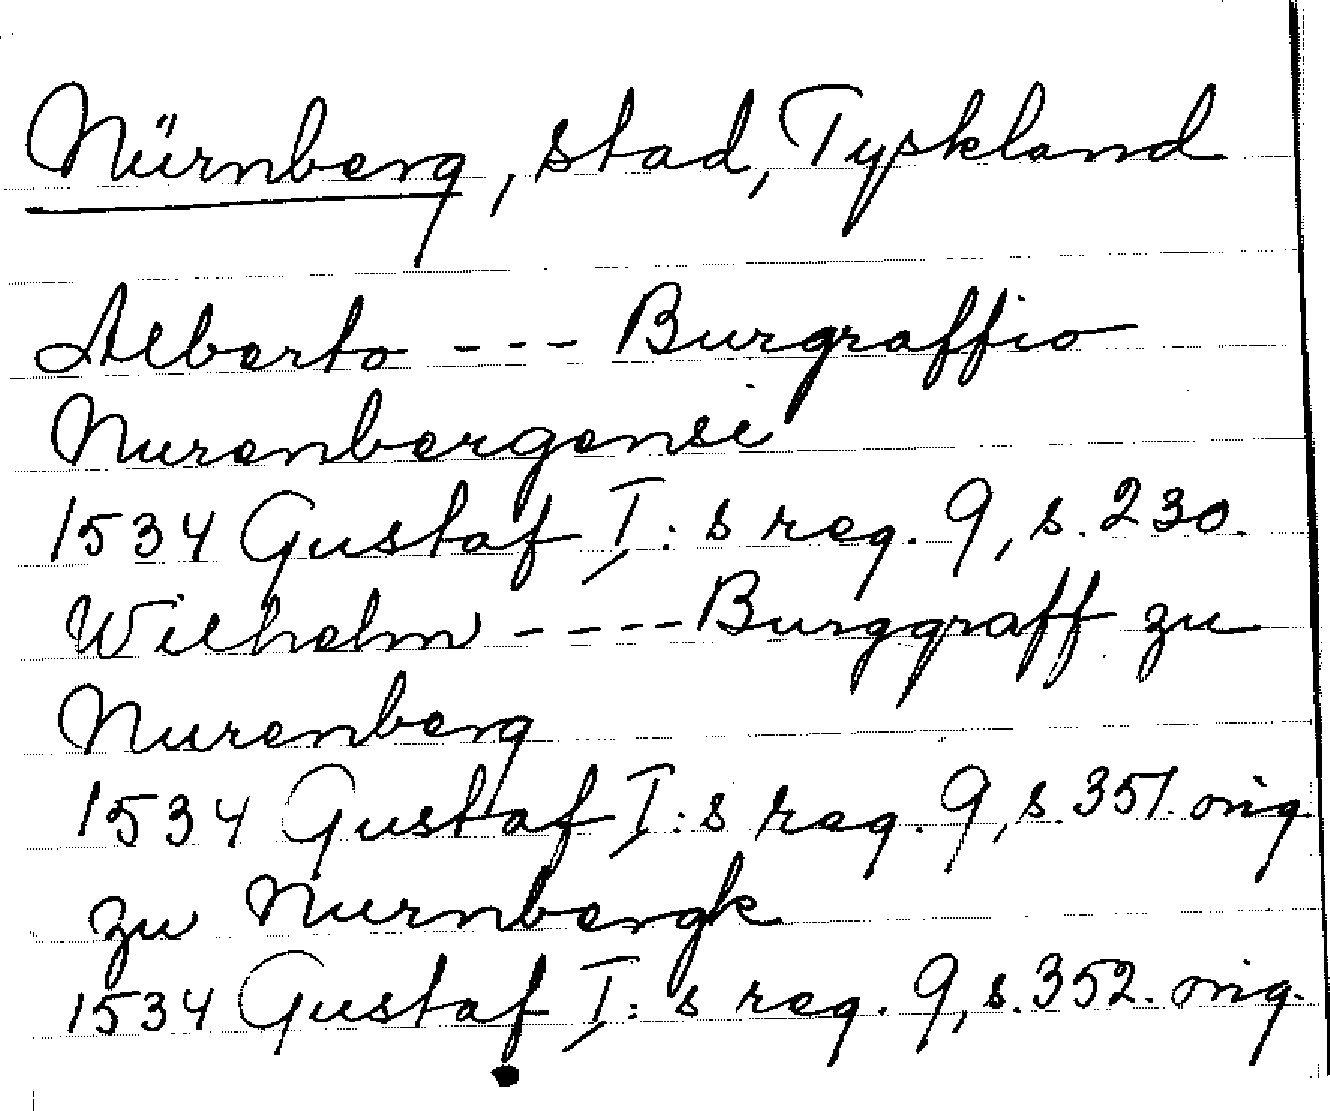 Nürnberg, stad, Tyskland
Alberto --- Burgraffio
Nurenbergensi
1534 Gustaf I:s reg. 9, s. 230.
Wilhelm ---- Burggraff zu
Nurenberg
1534 Gustaf I:s reg. 9, s. 351. orig.
zu Nurnbergk
1534 Gustaf I:s reg. 9, s. 352. orig.